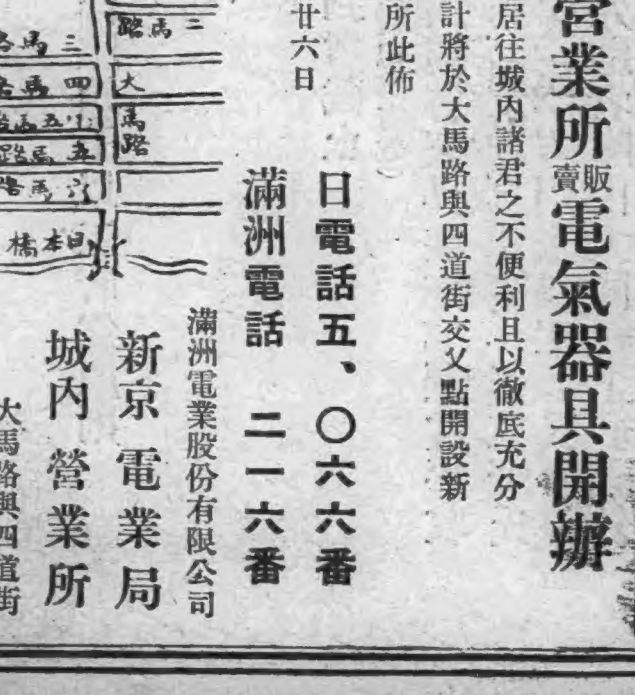 營業所販賣電氣器具開辦
居往城內諸君之不便利且以徹底充分
計將於大馬路與四道街交叉點開設新
所此佈
廿六日
日電話五、〇六六番
滿洲電話 二一六番
滿洲電業股份有限公司
新京電業局
城內營業所
大馬路與四道街
二馬路
大馬路
三馬路
四馬路
五馬路
六馬路
日本橋